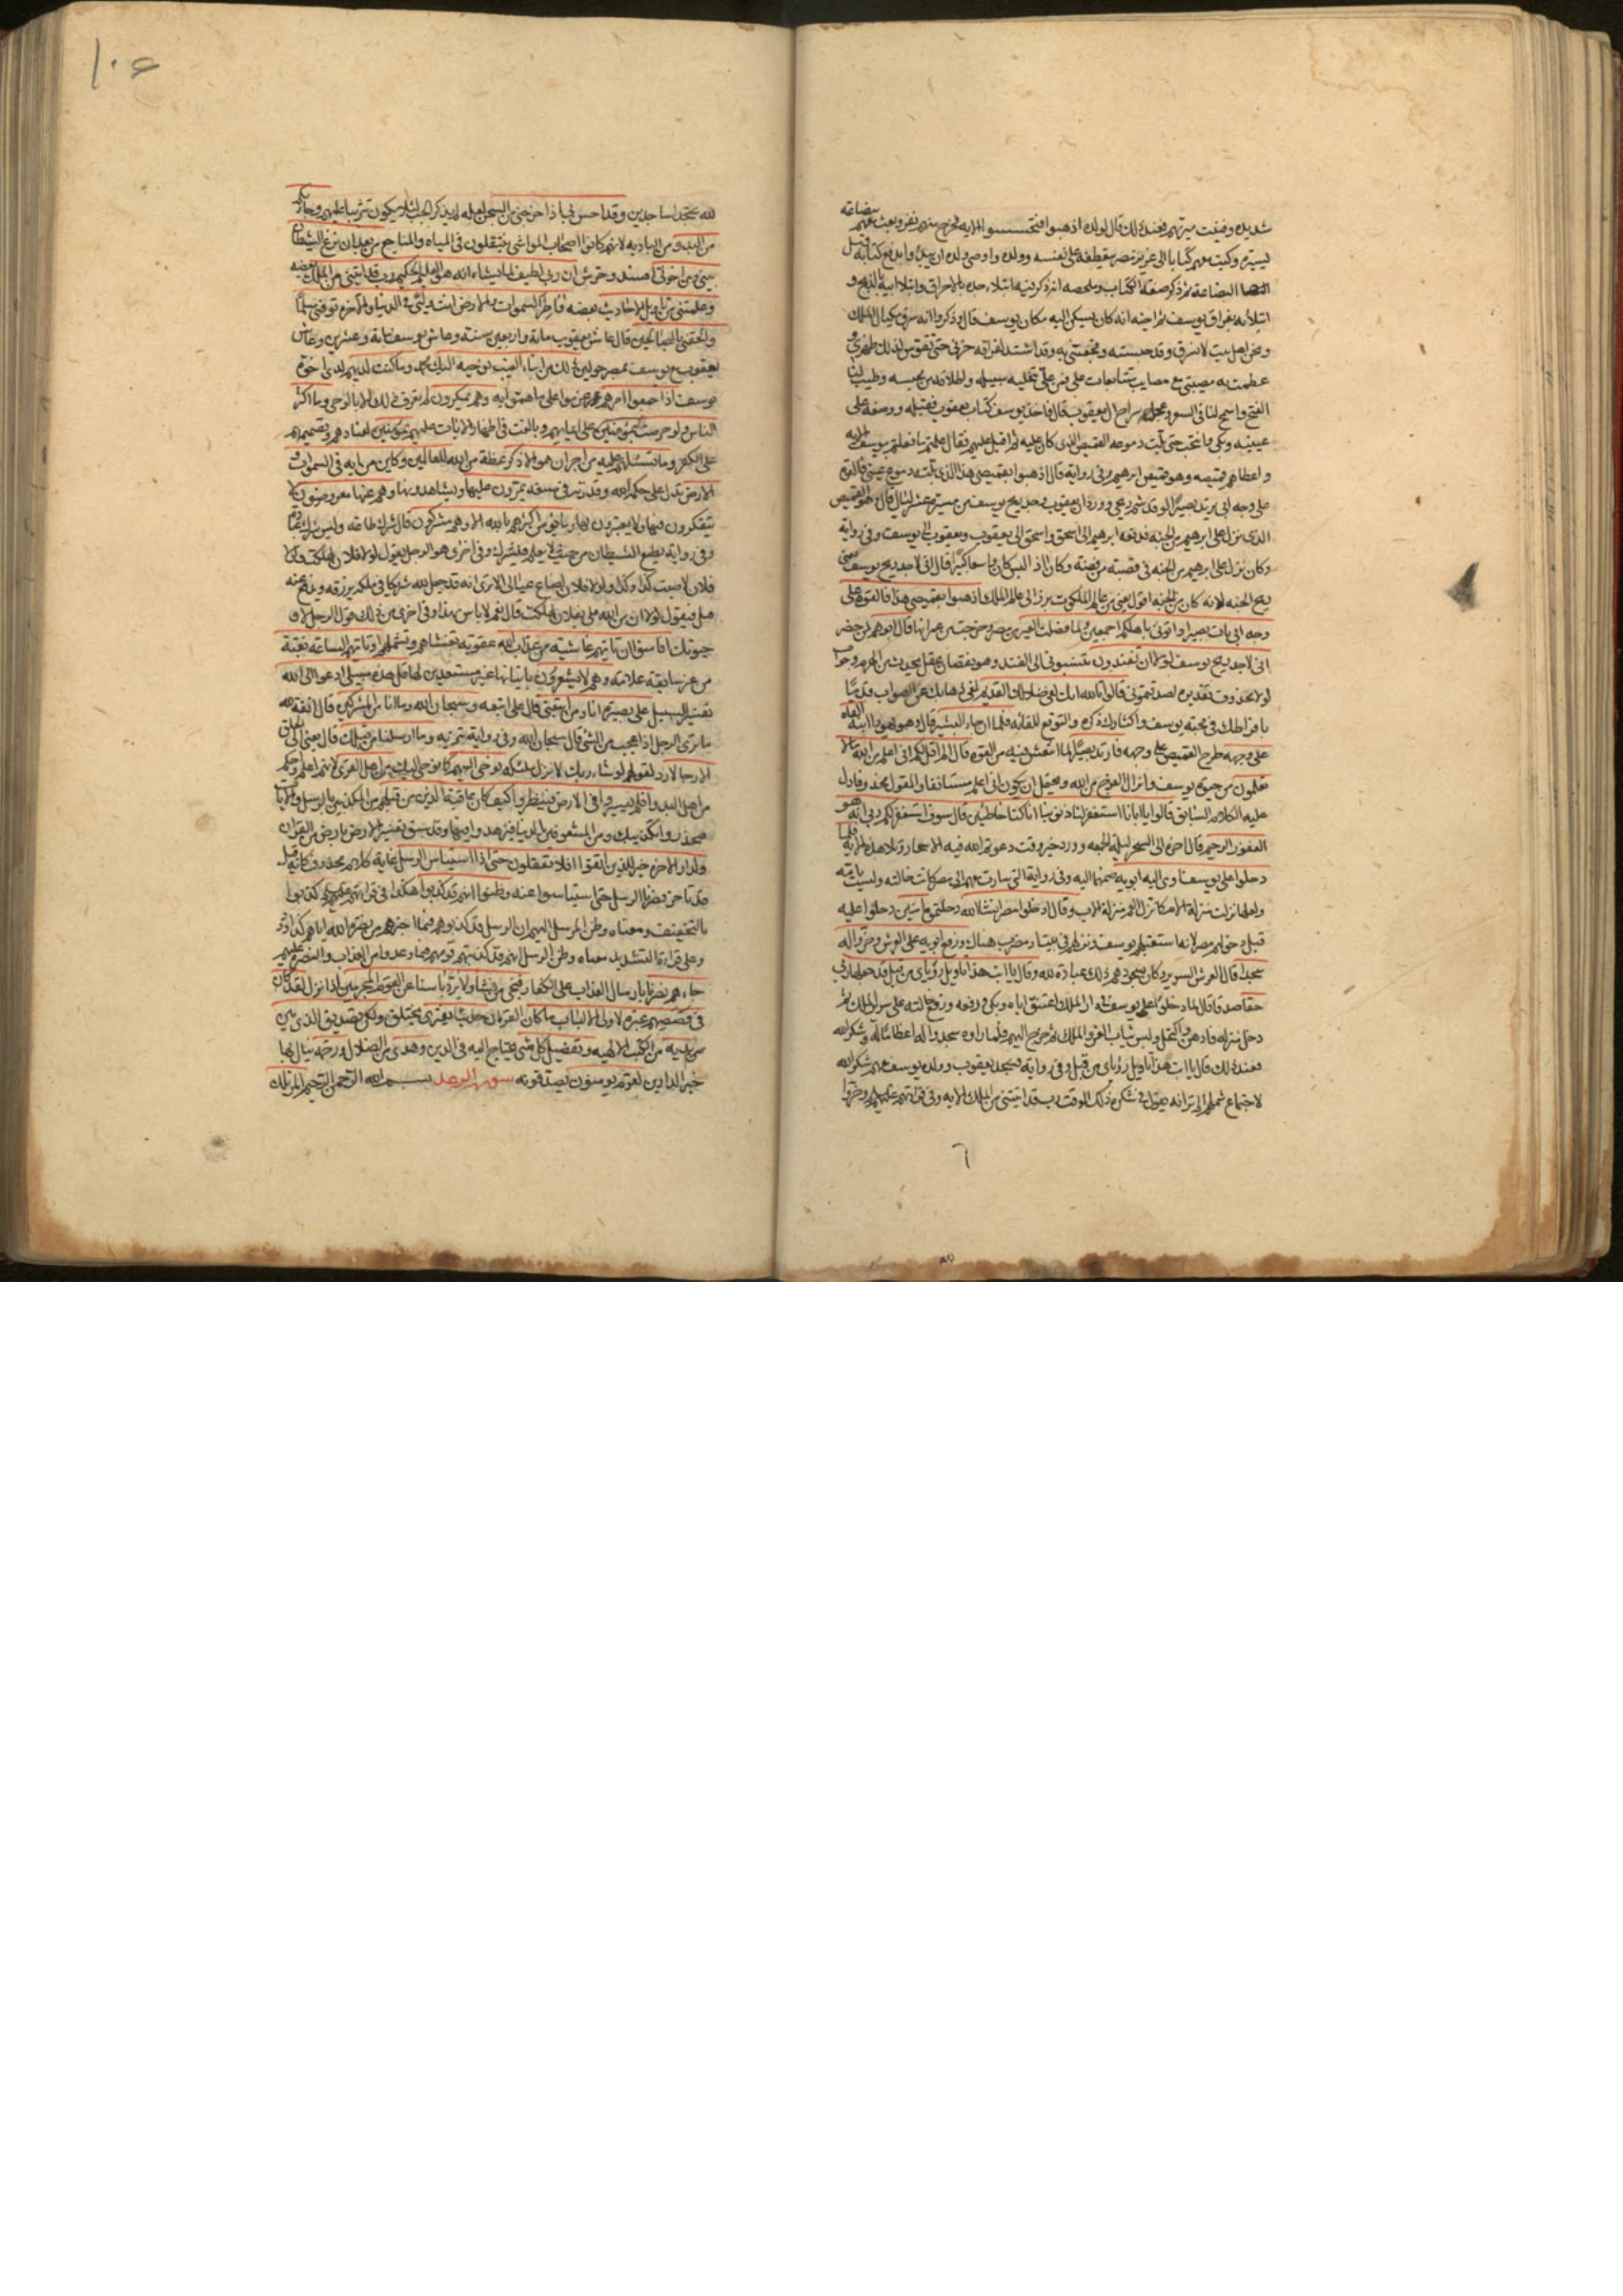 شديدة وضيقت ميرتهم فعند ذلك قال لولده اذهبوا فتحسسوا الاية فخرج منهم نفر وبعث معهم ببضاعة
يسيرة وكتب معهم كتابا الى عزيز مصر يتعطفه على نفسه وولده واوصى ولده ان يبدؤا بدفع كتابه قبل
البضاعة ثم ذكر صفة الكتاب وملخصه انه ذكر فيه ابتلاء جده بالاحراق وابتلا ابيه بالذبح و
ابتلائه بفراق يوسف ثم اخيه انه كان يسكن اليه مكان يوسف قال وذكروا انه سرق مكيال الملك
ونحن اهل بيت لا نسرق وقد حبسته وفجعتني به وقد اشتد لفراقه حزني حتى تقوس لذلك ظهري و
عظمت به مصيبتي مع مصايب متتابعات علي فمن علي بتخلية سبيله واطلاقه من حبسه وطيب لنا
القمح واسمح لنا في السعر وعجل سراح ال يعقوب قال فاخذ يوسف كتاب يعقوب فقبله ووضعه على
عينيه وبكى وانتحب حتى بلت دموعه القميص الذي كان عليه ثم اقبل عليهم فقال هل علمتم ما فعلتم بيوسف الاية
واعطاهم قميصه وهو قميص ابرهيم وفي رواية قال اذهبوا بقميصي هذا الذي بلته دموع عيني فالقوه
على وجه ابي يرتد بصيرا لو قد شم ريحي وورد ان يعقوب وجد ريح يوسف من مسيرة عشر ليال قال وهو القميص
الذي نزل على ابرهيم من الجنة فدفعه ابرهيم الى اسحق واسحق الى يعقوب ويعقوب الى يوسف وفي رواية
وكان نزل على ابرهيم من الجنة في قصبة من فضة وكان اذا لبس كان واسعا كبيرا قال اني لاجد ريح يوسف يعني
ريح الجنة لانه كان من الجنة اقول يعني من عالم الملكوت برز الى عالم الملك اذهبوا بقميصي هذا فالقوه على
وجه ابي يات بصيرا واتوني باهلكم اجمعين ولما فصلت العير من مصر وخرجت من عمرانها قال ابوهم لمن حضر
اني لاجد ريح يوسف لولا ان تفندون تنسبوني الى الفند وهو نقصان عقل يحدث من الهرم وجواب
لولا محذوف تقديره لصدقتموني قالوا تالله انك لفي ضلالك القديم لفي ذهابك عن الصواب قديما
بافراطك في محبة يوسف واكثارك ذكره والتوقع للقائه فلما ان جاء البشير قال وهو يهودا ابنه القاه
على وجهه طرح القميص على وجهه فارتد بصيرا لما انتعش فيه من القوة قال الم اقل لكم اني اعلم من الله ما لا
تعلمون من حيوة يوسف وانزال الفرج من الله ويحتمل ان يكون اني اعلم مستانفا والمقول محذوفا دل
عليه الكلام السابق قالوا يا ابانا استغفر لنا ذنوبنا انا كنا خاطئين قال سوف استغفر لكم ربي انه هو
الغفور الرحيم قال اخره الى السحر ليلة الجمعة وورد خير وقت دعوتم الله فيه الاسحار وتلا هذه الاية فلما
دخلوا على يوسف اوى اليه ابويه ضمهما اليه وفي رواية التي سارت معهم الى مصر كانت خالته وليست بامه
ولعلها نزلت منزلة الام كما نزل العم منزلة الاب وقال ادخلوا مصر انشاء الله دخلتموها منين دخلوا عليه
قبل دخولهم مصر لانه استقبلهم يوسف ونزلهم في بيت او مضرب هناك ورفع ابويه على العرش وخروا له
سجدا قال العرش السرير وكان سجودهم ذلك عبادة لله وقال يا ابت هذا تاويل رؤياي من قبل قد جعلها ربي
حقا صدقا قال لما دخلوا على يوسف في دار الملك اعتنق اباه وبكى ورفعه ورفع خالته على سرير الملك ثم
دخل منزله فادهن واكتحل ولبس ثياب العز والملك ثم خرج اليهم فلما راوه سجدوا له اعظاما له وشكرا لله
فعند ذلك قال يا ابت هذا تاويل رؤياي من قبل وفي رواية فسجد يعقوب وولده ويوسف معهم شكرا لله
لاجتماع شملهم الم تر انه يقول في شكره ذلك الوقت رب قد اتيتني من الملك الاية وفي قرائتهم عليهم السلام وخروا
٦
١٠٤
لله سجدا ساجدين وقد احسن بي اذ اخرجني من السجن لعله لم يذكر الجب لئلا يكون تثريبا عليهم وجاء بكم
من البدو من البادية لانهم كانوا اصحاب المواشي ينتقلون في المياه والمناجع من بعد ان نزغ الشيطان
بيني وبين اخوتي افسد وحرش ان ربي لطيف لما يشاء انه هو العليم الحكيم رب قد اتيتني من الملك بعضه
وعلمتني من تاويل الاحاديث بعضه فاطر السموات والارض انت وليي في الدنيا والاخرة توفني مسلما
والحقني بالصالحين قال عاش يعقوب مائة واربعين سنة وعاش يوسف مائة وعشرين وعاش
يعقوب مع يوسف بمصر حولين ذلك من انباء الغيب نوحيه اليك محمد وما كنت لديهم لدى اخوة
يوسف اذ اجمعوا امرهم عزموا على ما هموا به وهم يمكرون لم تعرف ذلك الا بالوحي وما اكثر
الناس ولو حرصت بمؤمنين على ايمانهم وبالغت في اظهار الايات عليهم بمؤمنين لعنادهم وتصميمهم
على الكفر وما تسئلهم عليه من اجر ان هو الا ذكر عظة من الله للعالمين وكاين من اية في السموات و
الارض تدل على حكم الله وقدرته في صنعه يمرون عليها ويشاهدونها وهم عنها معرضون لا
يتفكرون فيها ولا يعتبرون بها وما يؤمن اكثرهم بالله الا وهم مشركون قال شرك طاعة وليس شرك عبادة
وفي رواية يطيع الشيطان من حيث لا يعلم فيشرك وفي اخرى هو الرجل يقول لولا فلان لهلكت ولولا
فلان لاصبت كذا وكذا ولولا فلان لضاع عيالي الا ترى انه قد جعل لله شريكا في ملكه يرزقه ويدفع عنه
قيل فيقول لولا ان من الله علي بفلان لهلكت قال نعم لا باس بهذا وفي اخرى من ذلك قول الرجل لا و
حيوتك افامنوا ان تاتيهم غاشية من عذاب الله عقوبة تغشاهم وتشملهم او تاتيهم الساعة بغتة
من غير سابقة علامة وهم لا يشعرون باتيانها غير مستعدين لها قل هذه سبيلي ادعوا الى الله
تفسير للسبيل على بصيرة انا ومن اتبعني قال علي اتبعه وسبحان الله وما انا من المشركين قال انفة لله
ما ترى الرجل اذا عجب من الشئ قال سبحان الله وفي رواية تنزيه وما ارسلنا من قبلك قال يعني الى الخلق
الا رجالا رد لقولهم لو شاء ربك لانزل ملئكة نوحي اليهم كما نوحي اليك من اهل القرى لانهم اعلم واحلم
من اهل البدو افلم يسيروا في الارض فينظروا كيف كان عاقبة الذين من قبلهم من المكذبين بالرسل والايات
فيحذروا تكذيبك ومن المشعوفين بالدنيا فيزهدوا فيها وقد سبق تفسير الارض بارض القران
ولدار الاخرة خير للذين اتقوا افلا تعقلون حتى اذا استيأس الرسل غاية كلام محذوف كانه قيل
قد تاخر نصرنا الرسل حتى استياسوا عنه وظنوا انهم قد كذبوا هكذا في قرائتهم عليهم السلام كذبوا
بالتخفيف ومعناه وظن المرسل اليهم ان الرسل قد كذبوهم فيما اخبرهم من نصرة الله اياهم كذا ورد
وعلى قرائة التشديد معناه وظن الرسل انهم قد كذبتهم قومهم فيما وعدوا من العذاب والنصرة عليهم
جاءهم نصرنا بارسال العذاب على الكفار فنجي من نشاء ولا يرد باسنا عن القوم المجرمين اذا نزل لقد كان
في قصصهم عبرة لاولي الالباب ما كان القران حديثا يفترى يختلق ولكن تصديق الذي بين
يديه من الكتب الالهية وتفصيل كل شئ يحتاج اليه في الدين وهدى من الضلال ورحمة ينال بها
خير الدارين لقوم يؤمنون يصدقونه سورة الرعد بسم الله الرحمن الرحيم المر تلك